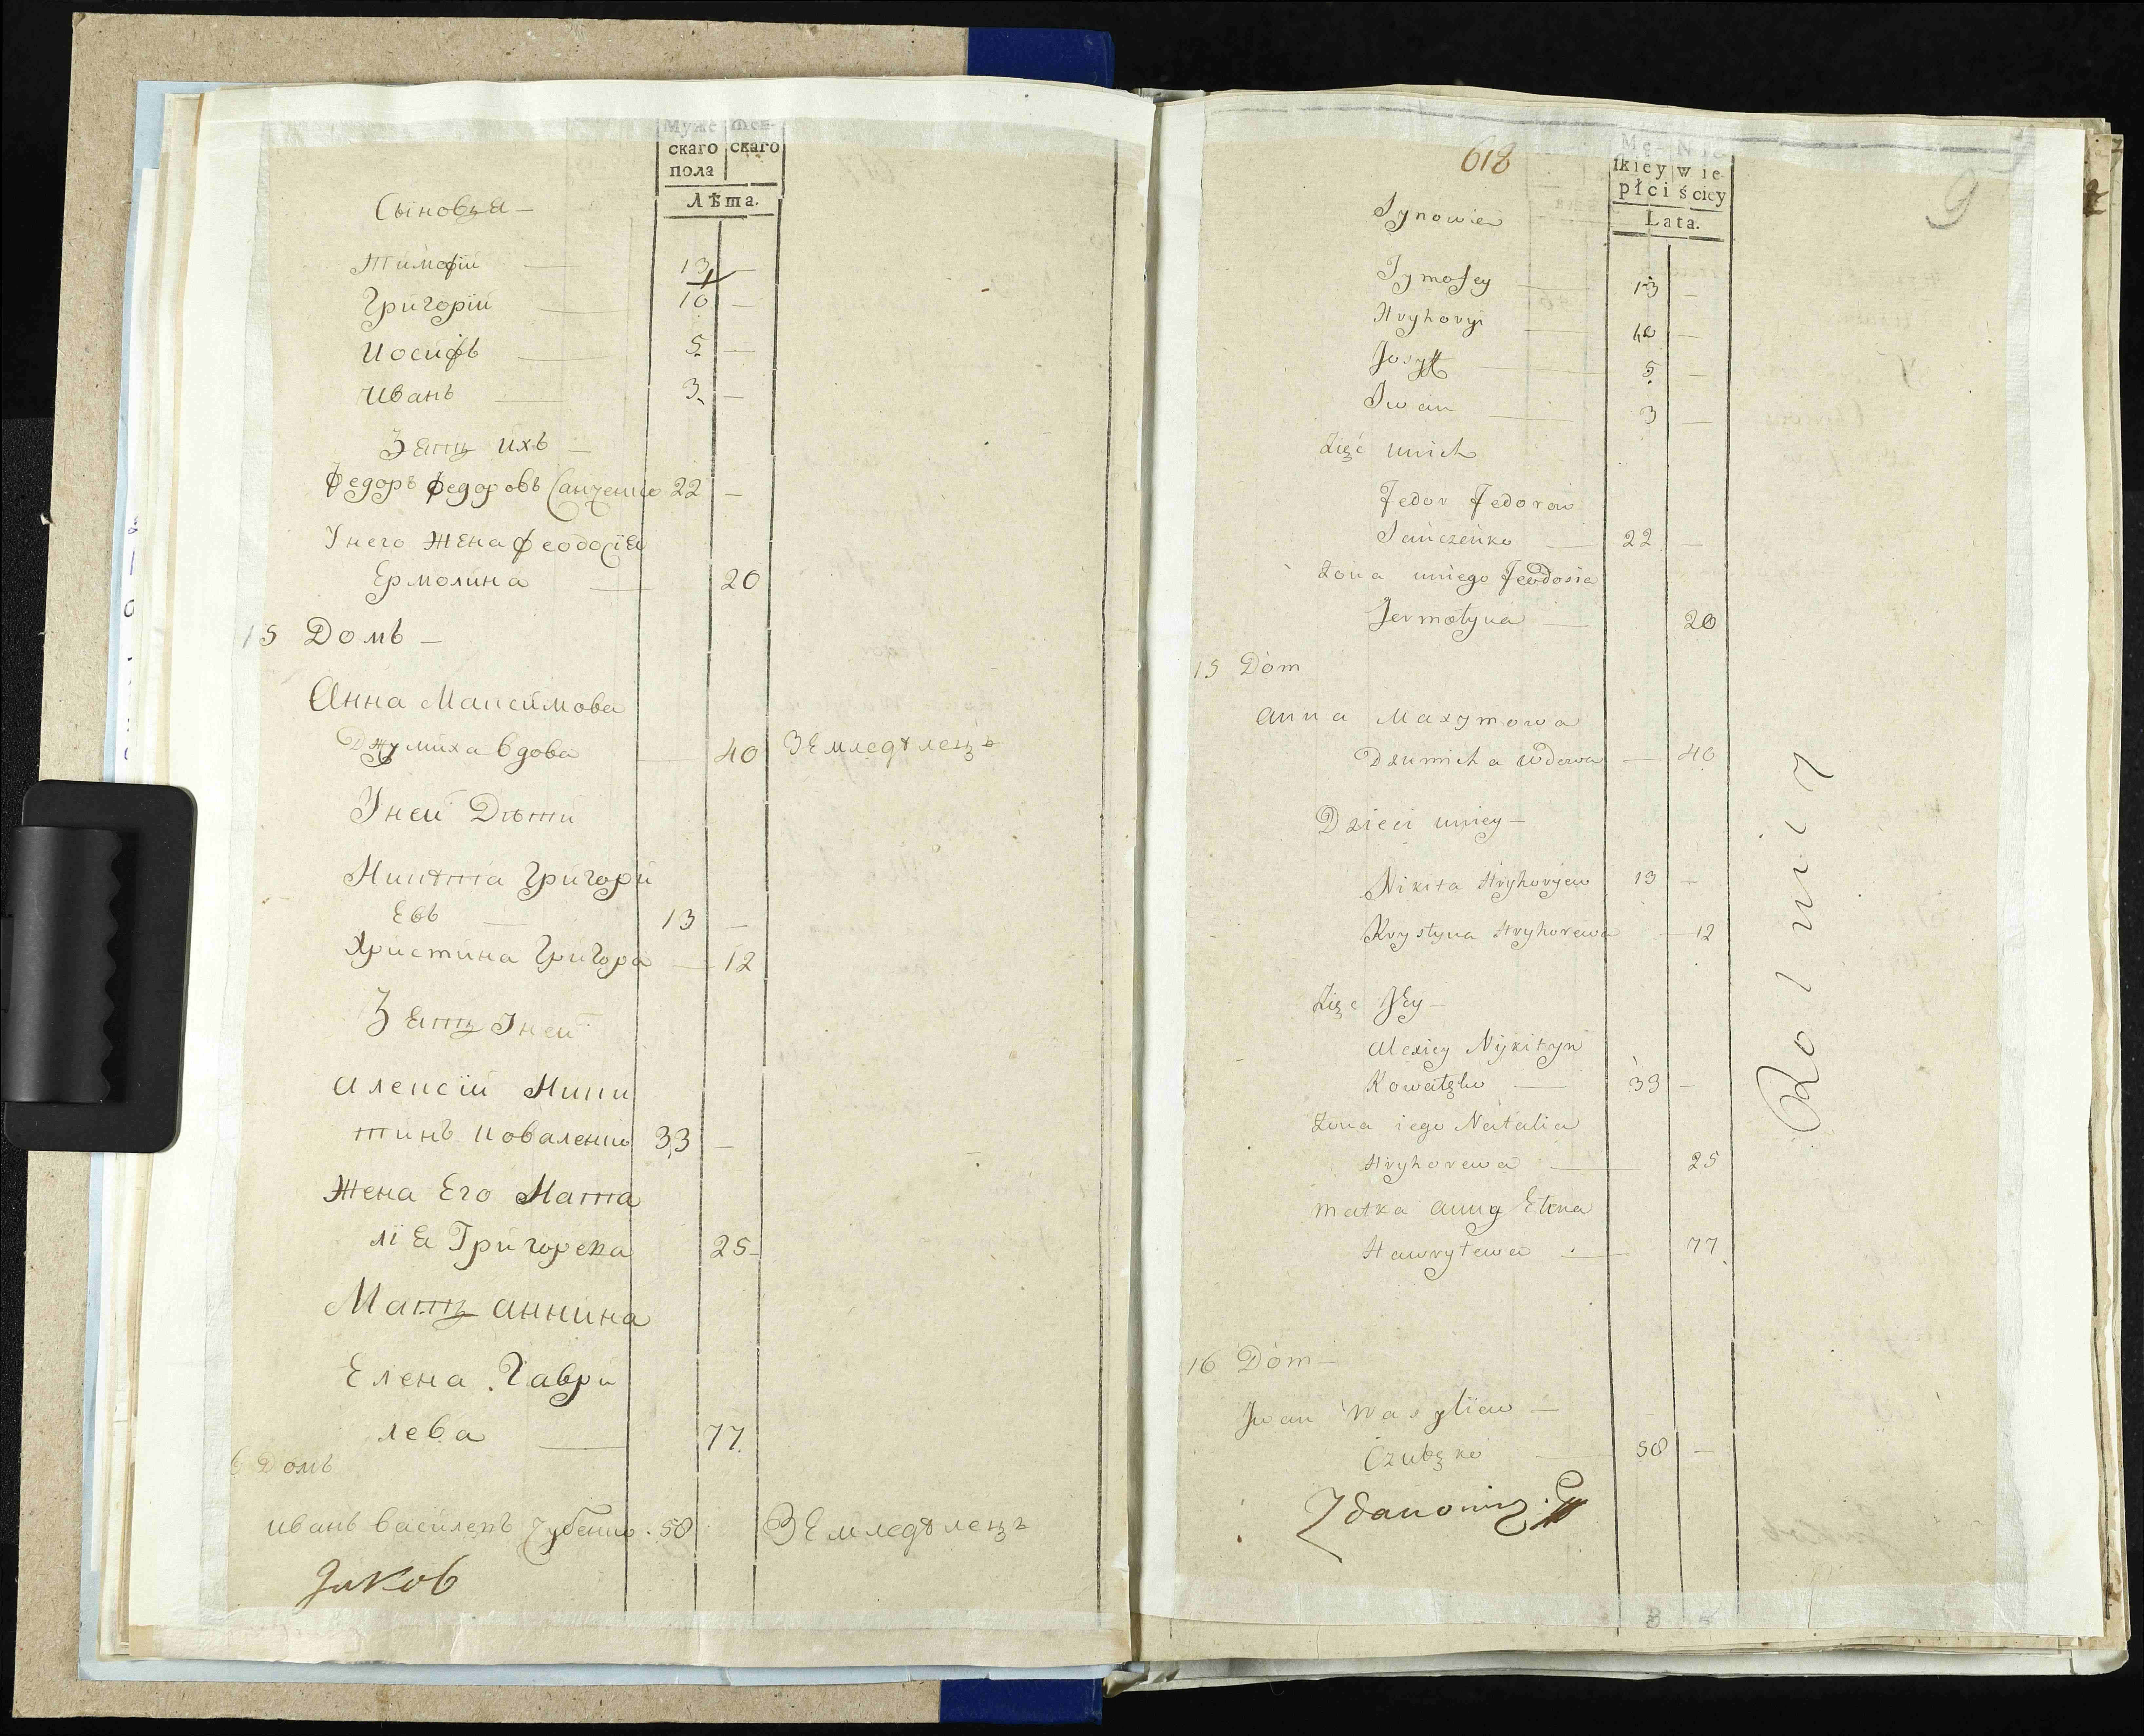 Муже Жен-
скаго скаго
пола
Лѣта.
Сыновья —
Тимофій — 13 —
Григорій — 10 —
Иосифъ — 5. —
Иванъ — 3. —
Зять ихъ —
Федоръ Федоровъ Санченко 22 —
У него жена Феодосія
Ермолина — 20
15 Домъ —
Анна Максимова
Джумиха вдова — 40 Земледѣлецъ
У ней Дѣти
Никита Григорй
евъ — 13 —
Христина Григора — 12
Зять У ней
Алексій Ники
тинъ Коваленко 33 —
Жена Его Ната
лія Григорева 25 —
Мать Аннина
Елена Гаври
лева — 77.
6 Домъ
Иванъ Василевъ Зубенко . 50 Земледѣлецъ
618
9
Mę- Nie
skiey wie
płci ściey
Lata.
Synowie
Tymofey — 13 —
Hryhoryi — 10 —
Josyff — 5. —
Iwan — 3 —
Zięć unich
Fedor Fedorow
Sanczenko — 22 —
Zona uniego Feodosia
Jermołyna — 20
15 Dom
Anna Maxymowa
Dzumicha wdowa — 40
Dzieci uniey —
Nikita Hryhoryew 13 —
Krystyna Hryhorewa — 12
Zięc Jey —
Alexiey Nykityn
Kowalenko — 33 —
Zona iego Natalia
Hryhorewa — 25
Matka Anny Elena
Hawryłewa — 77.
Rolnicy
16 Dom —
Iwan Wasyliew —
50 —